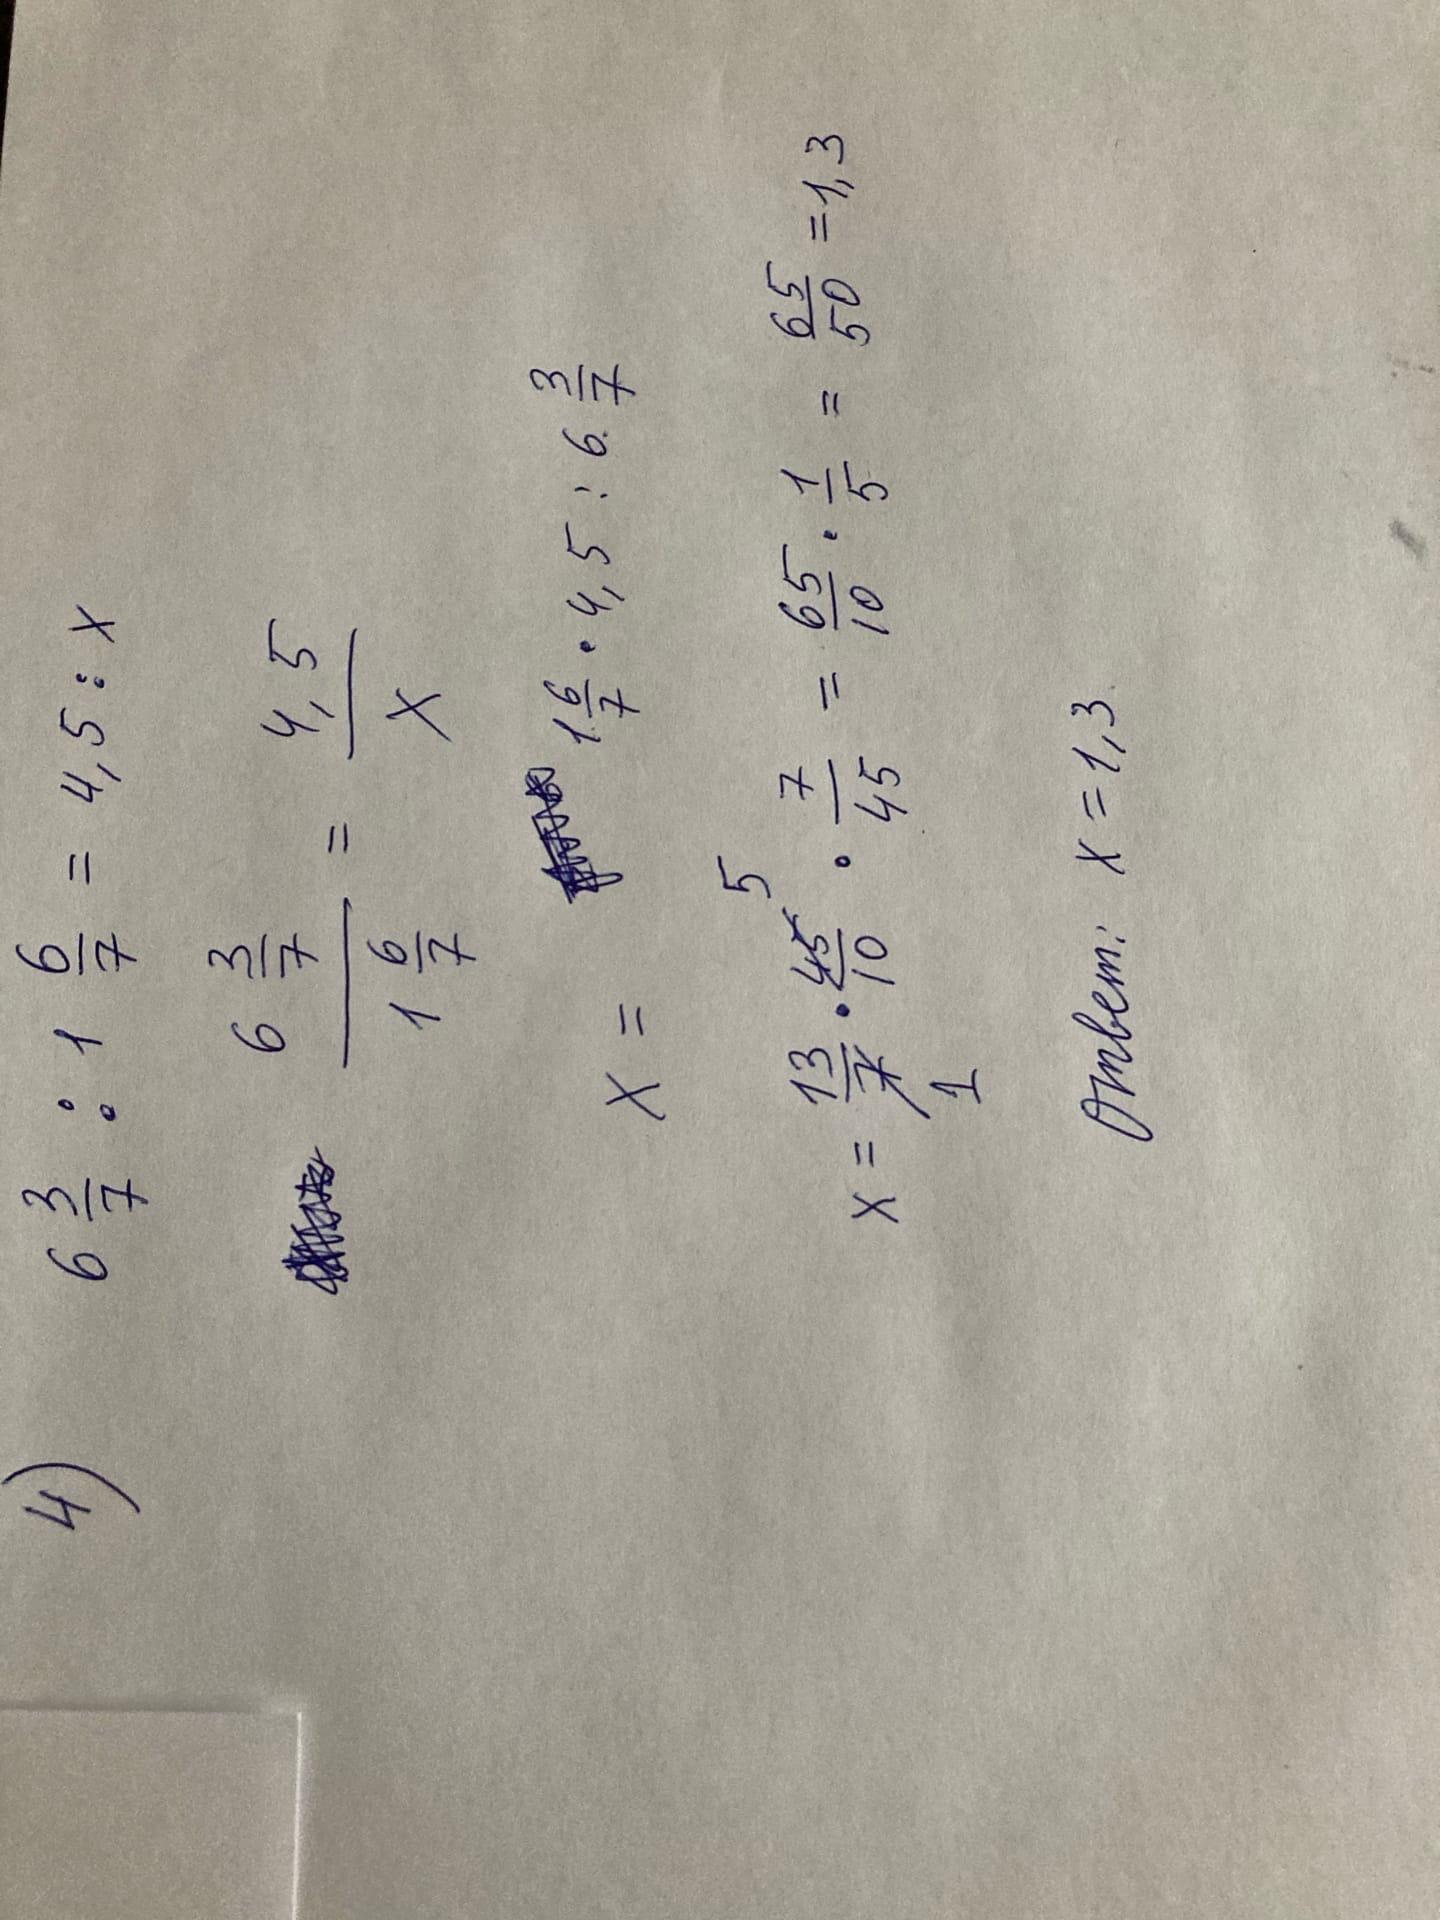 4) 6 3/7 : 1 6/7 = 4,5 : x
6 3/7 / 1 6/7 = 4,5 / x
x = 1 6/7 · 4,5 : 6 3/7
5
x = 13/7 · 45/10 · 7/45 = 65/10 · 1/5 = 65/50 = 1,3
1
Ответ: x = 1,3